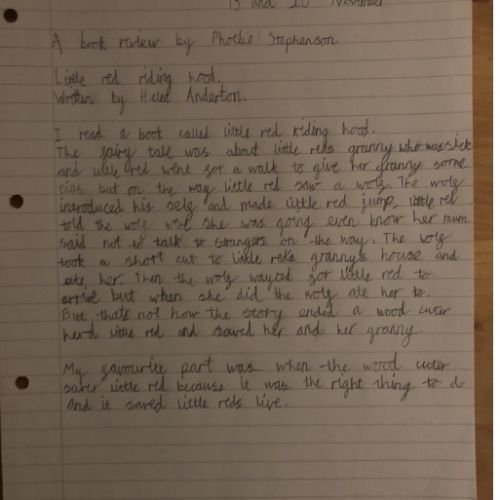 15 and 20 November
A book review by Phoebe Stephenson.
Little red riding hood.
Written by Helen Anderton.
I read a book called little red riding hood.
The fairy tale was about little reds granny who was sick
and little red went for a walk to give her granny some
but on the way little red saw a wolf. The wolf
introduced his self and made little red jump, little red
told the wolf were she was going even know her mum
said not to talk to strangers on the way. The wolf
took a short cut to little red's grannys house and
ate her. Then the wolf wayted for little red to
artise but when she did the wolf ate her to.
But thats not how the story ended a wood cuter
herd little red and saved her and her granny.
My favourite part was when the wood cuter
saved little red because it was the right thing to do
and it saved little reds live.